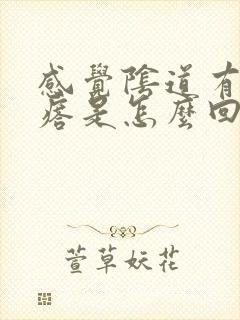 感覺陰道有
痞是怎麼回
萱草妖花